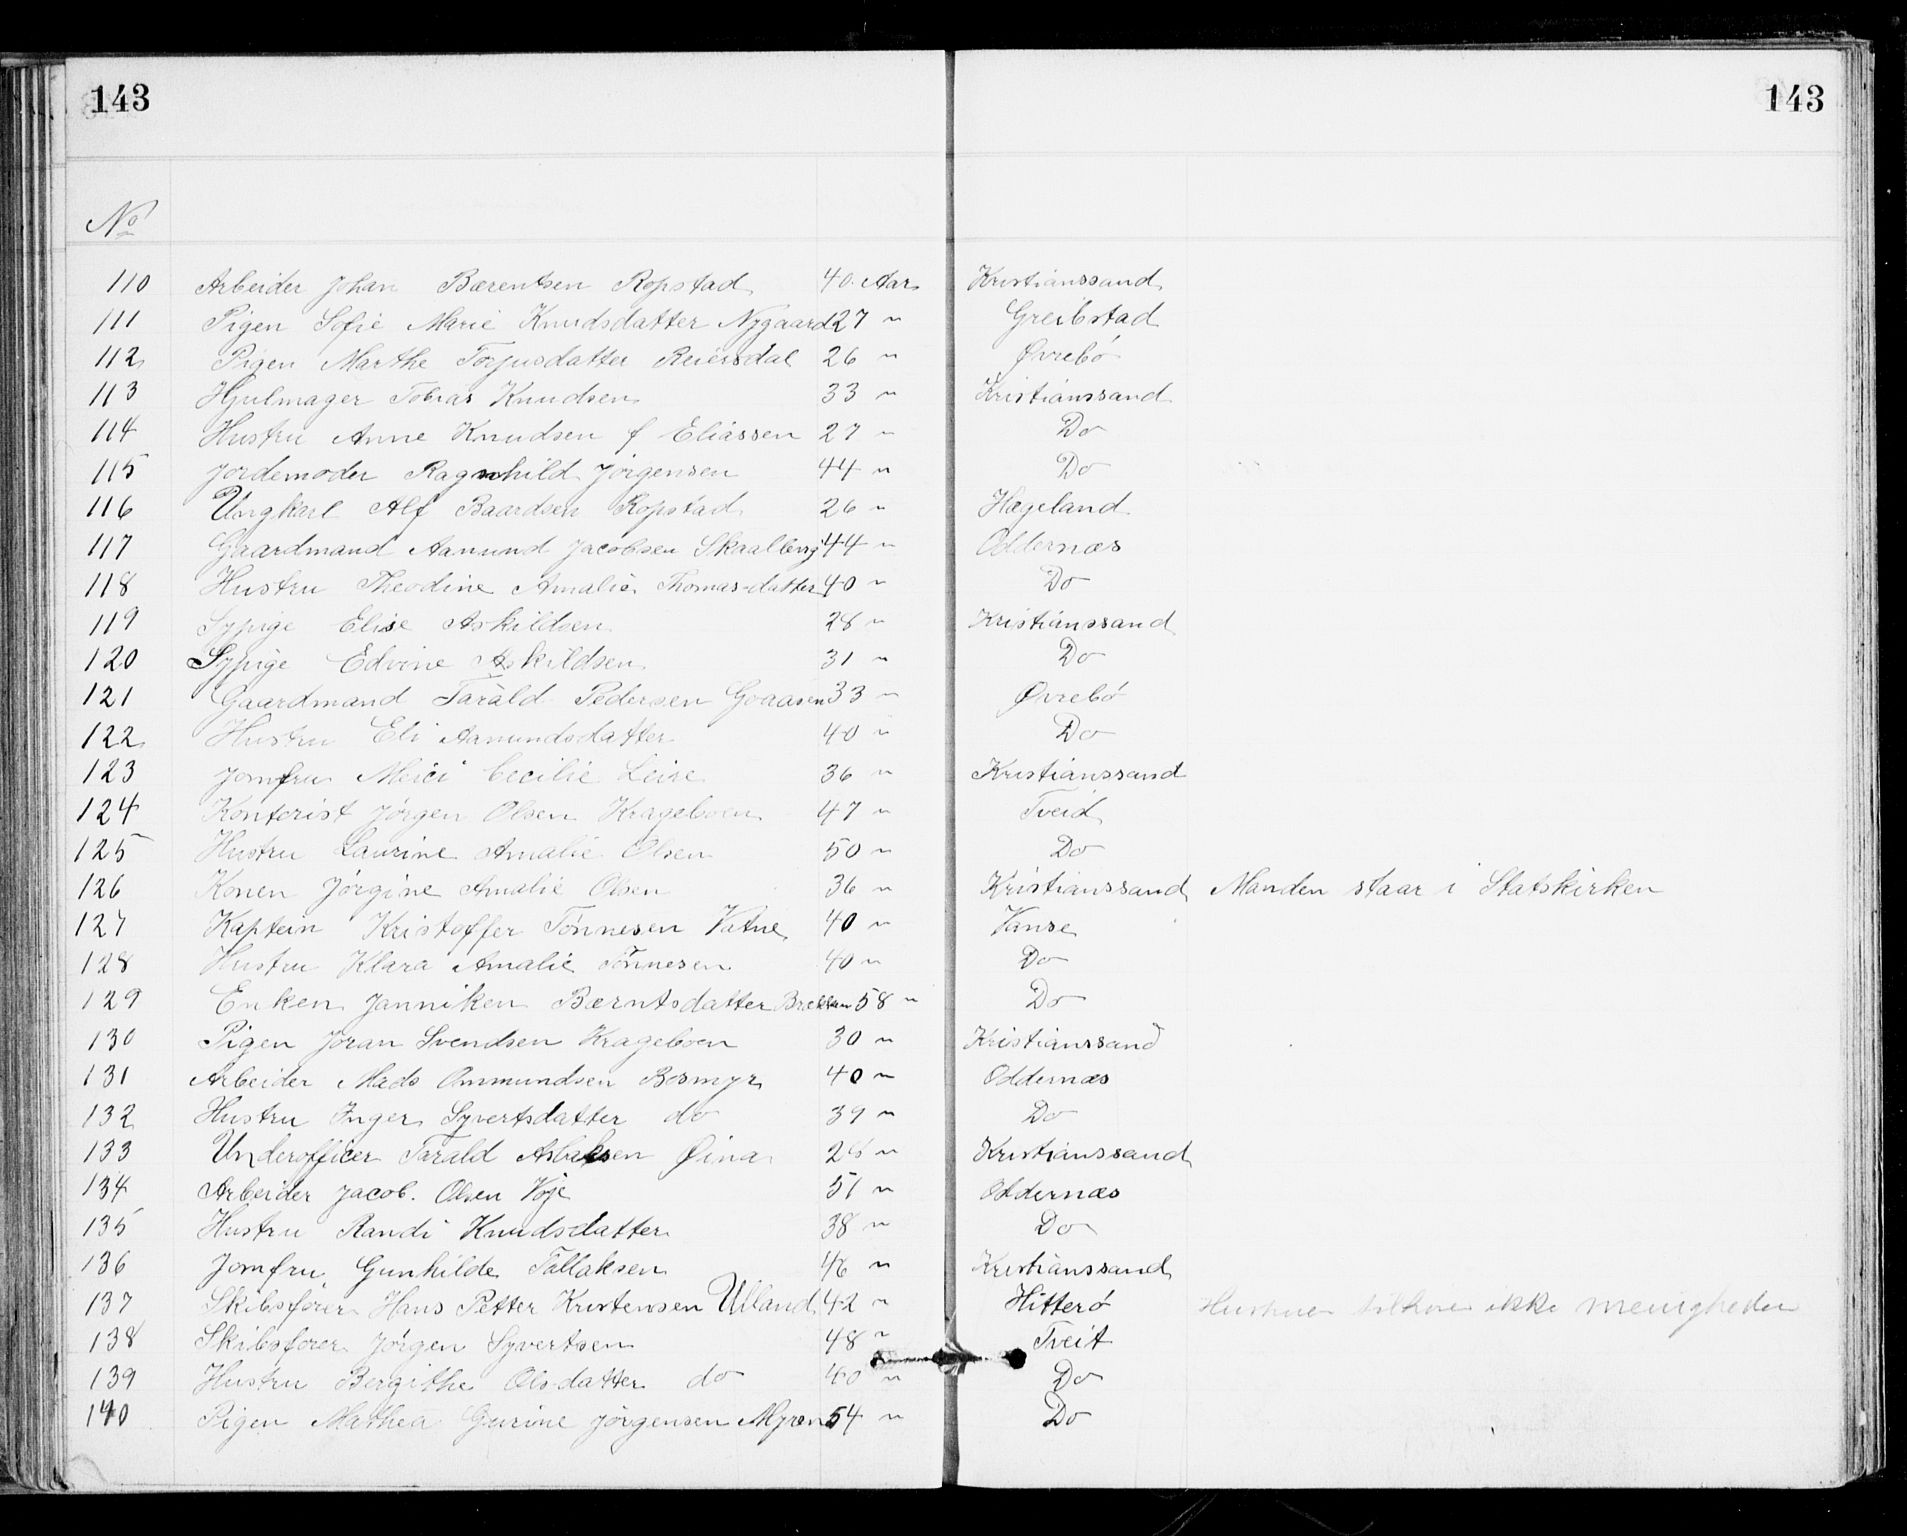 143 143
No
110 Arbeider Johan Bærentsen Ropstad 40 Aar Kristianssand
111 Pigen Sofie Marie Knudsdatter Nygaard 27 " Greibstad
112 Pigen Marthe Torjusdatter Reiersdal 26 " Øvrebö
113 Hjulmager Tobias Knudsen 33 " Kristianssand
114 Hustru Anne Knudsen f Eliassen 27 " Do
115 Jordemoder Ragnhild Jörgensen 44 " Do
116 Ungkarl Alf Baardsen Ropstad 26 " Hægeland
117 Gaardmand Aanund Jacobsen Skaalberg 44 " Oddernæs
118 Hustru Theodine Amalie Thomas-datter 40 " Do
119 Sypige Elise Askildsen 28 " Kristianssand
120 Sypige Edvine Askildsen 31 " Do
121 Gaardmand Tarald Pedersen Goaasen 33 " Øvrebö
122 Hustru Eli Aanundsdatter 40 " Do
123 Jomfru Meici Cecilie Leire 36 " Kristianssand
124 Kontorist Jörgen Olsen Krageboen 47 " Tveid
125 Hustru Laurine Amalie Olsen 50 " Do
126 Konen Jörgine Amalie Olsen 36 " Kristianssand Manden staar i Statskirken
127 Kaptein Kristoffer Tönnesen Vatne 40 " Vanse
128 Hustru Klara Amalie Tönnesen 40 " Do
129 Enken Janniken Bærntsdatter 58 " Do
130 Pigen Joran Svendsen Krageboen 30 " Kristianssand
131 Arbeider Mads Ommundsen Bosmyr 40 " Oddernæs
132 Hustru Inger Syvertsdatter do 39 " Do
133 Underofficer Tarald Aslaksen Øina 26 " Kristianssand
134 Arbeider Jacob. Olsen Voje 51 " Oddernæs
135 Hustru Randi Knudsdatter 38 " Do
136 Jomfru Gunhilde Tallaksen 46 " Kristianssand
137 Skibsförer Hans Petter Kristensen Ulland 42 " Hitterö Hustruen tilhører ikke menigheden
138 Skibsförer Jörgen Syvertsen 48 " Tveit
139 Hustru Bergithe Olsdatter do 40 " Do
140 Pigen Mathea Gurine Jörgensen Myren 54 " Do